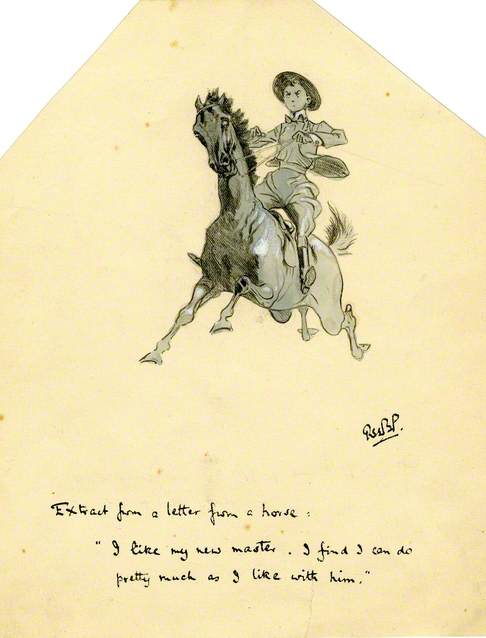 RSSBP.
Extract from a letter from a horse:
"I like my new master. I find I can do
pretty much as I like with him."